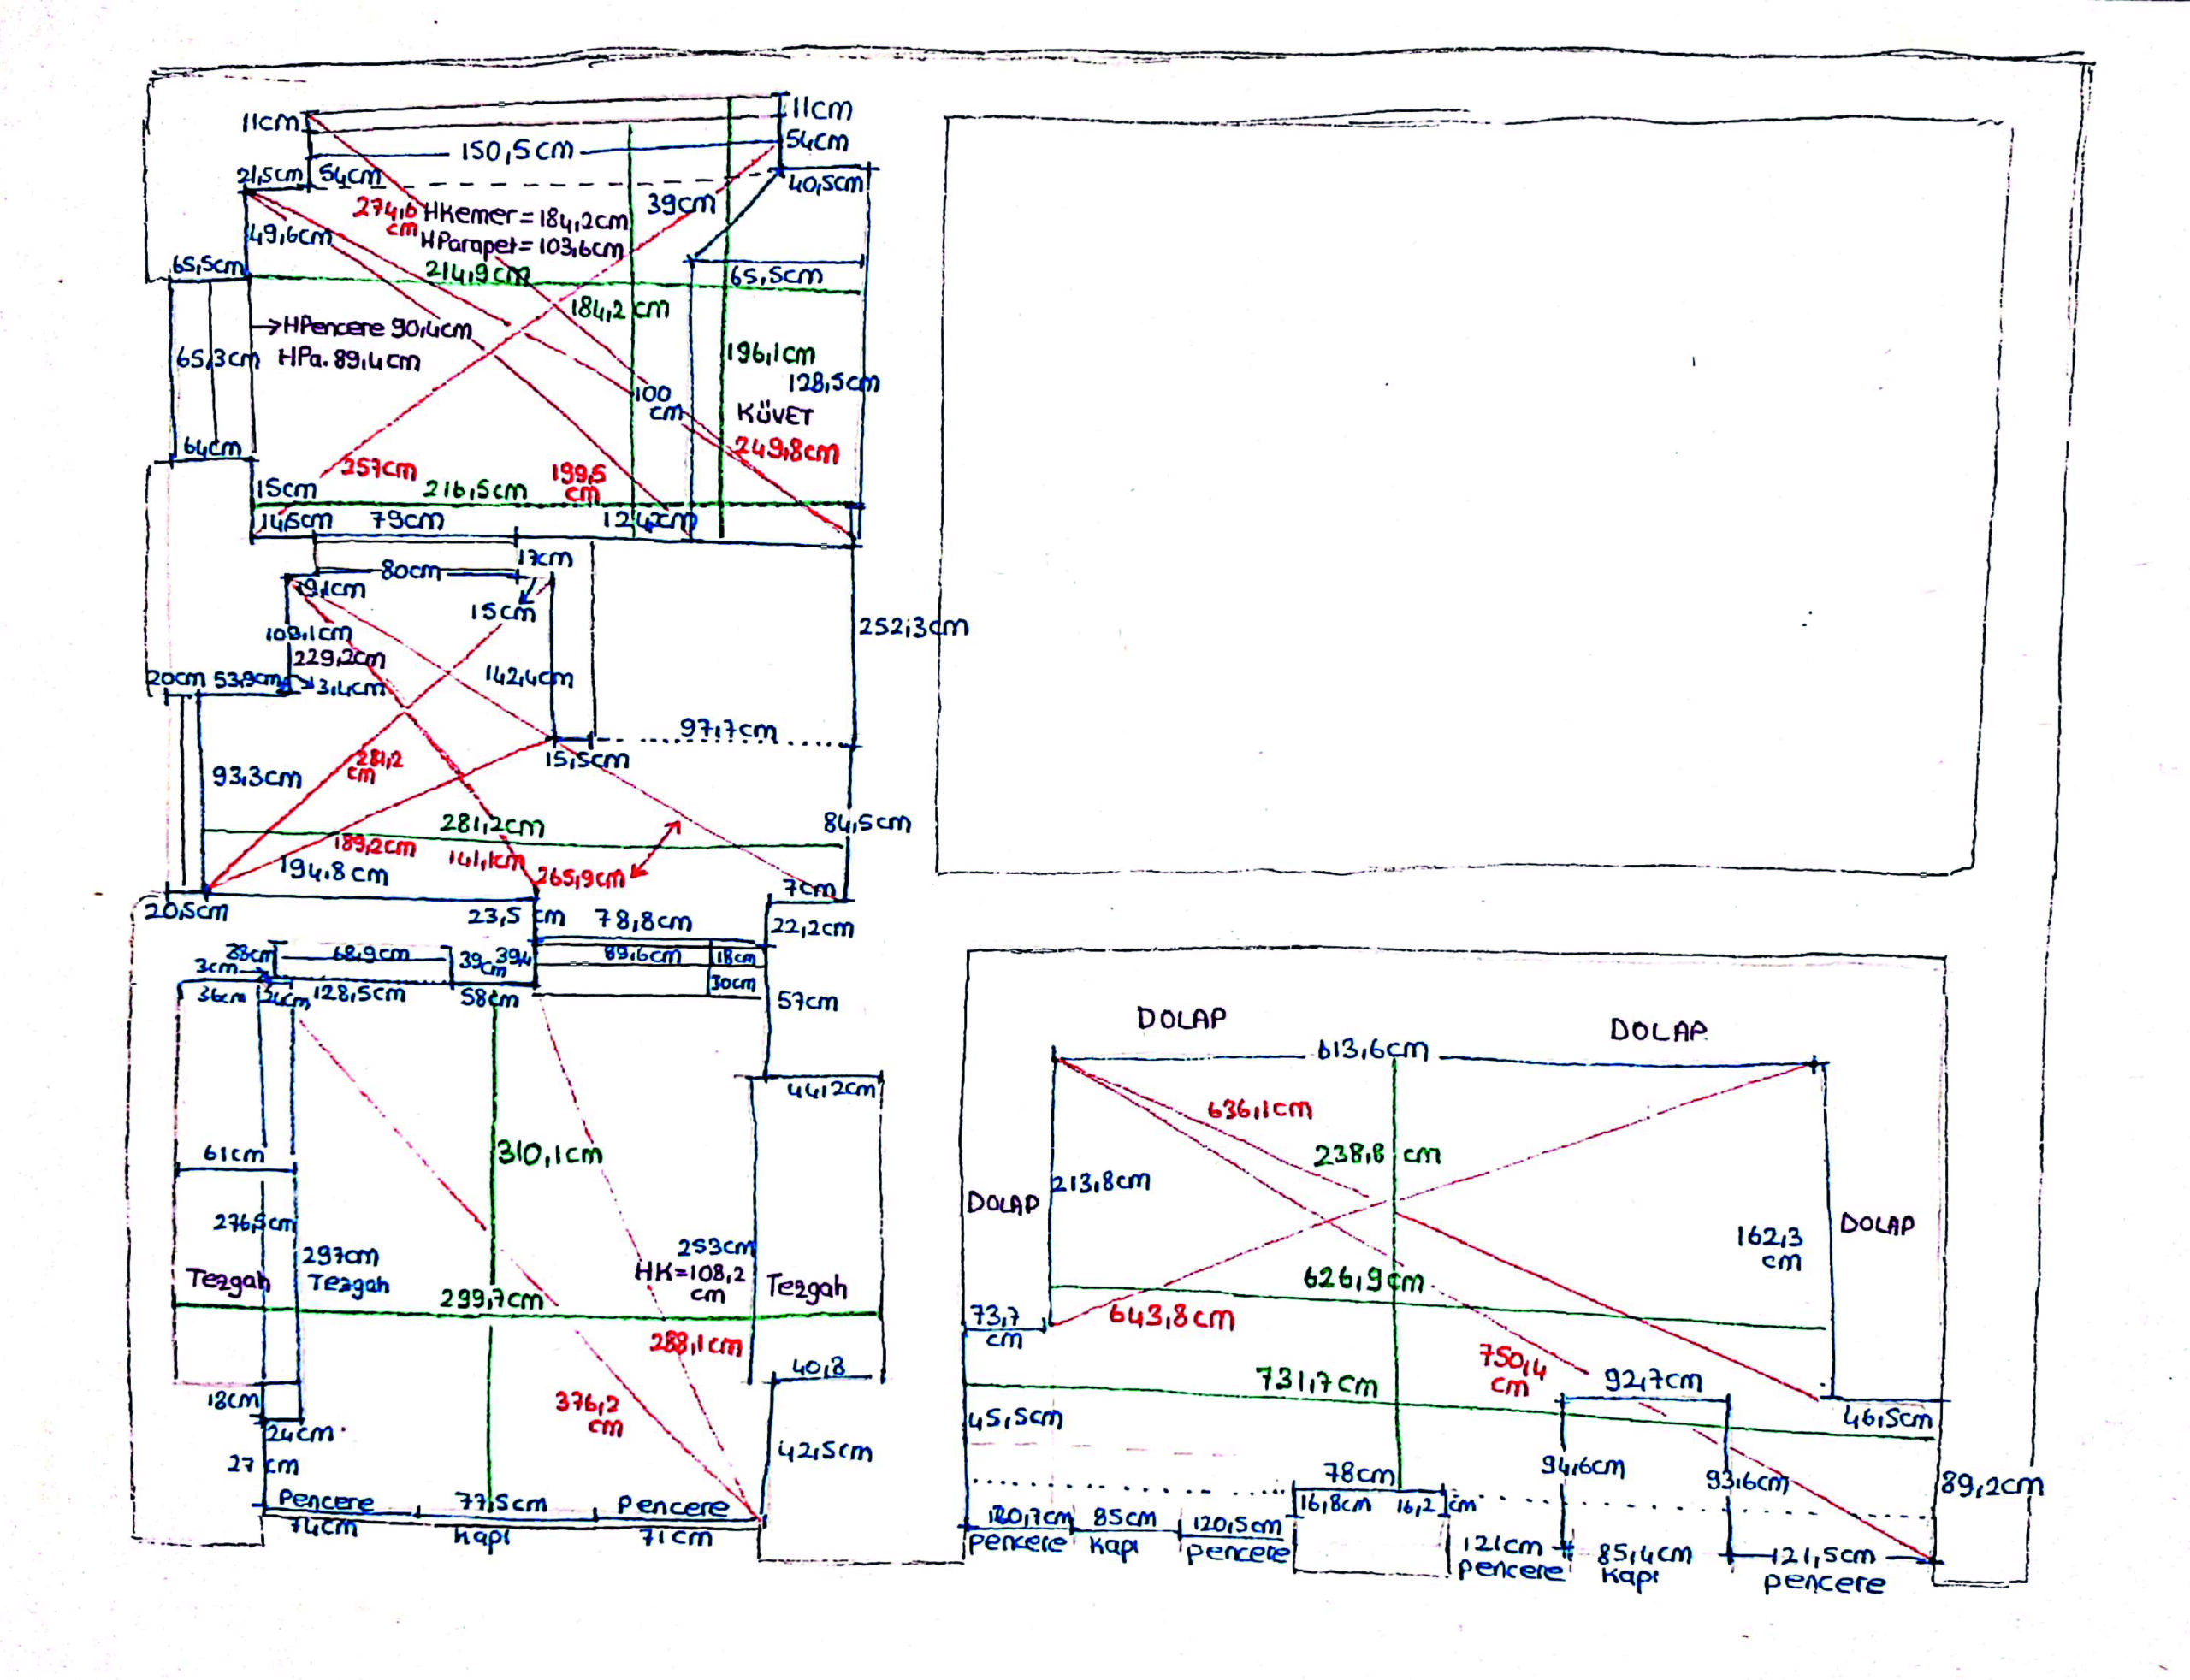 11cm
11cm
150,5cm
54cm
21,5cm
54cm
40,5cm
274,6
cm
HKemer=184,2cm
39cm
49,6cm
HParapet=103,6cm
65,5cm
214,9cm
65,5cm
184,2cm
→HPencere 90,4cm
65,3cm
HPa. 89,4cm
196,1cm
128,5cm
100
cm
KÜVET
64cm
249,8cm
257cm
199,5
cm
15cm
216,5cm
14,5cm
79cm
17cm
80cm
15cm
252,3cm
229,2cm
142,4cm
20cm
3,4cm
97,7cm
15,5cm
93,3cm
281,2
cm
281,2cm
84,5cm
189,2cm
141,1cm
194,8cm
265,9cm
7cm
20,5cm
23,5 cm
78,8cm
22,2cm
68,9cm
39cm
89,6cm
18cm
3cm
30cm
36cm
128,5cm
58cm
57cm
44,2cm
61cm
310,1cm
276,5cm
297cm
253cm
Tezgah
Tezgah
HK=108,2
cm
Tezgah
299,7cm
288,1cm
40,8
18cm
376,2
cm
24cm
42,5cm
27 cm
Pencere
77,5cm
Pencere
74cm
Kapı
71cm
DOLAP
DOLAP
613,6cm
636,1cm
238,8 cm
213,8cm
DOLAP
DOLAP
162,3
cm
626,9cm
73,7
cm
643,8cm
750,4
cm
731,7cm
92,7cm
45,5cm
46,5cm
78cm
94,6cm
93,6cm
89,2cm
16,8cm
16,2 cm
120,7cm
85cm
120,5cm
121cm
85,4cm
121,5cm
pencere
Kapı
pencere
pencere
Kapı
pencere